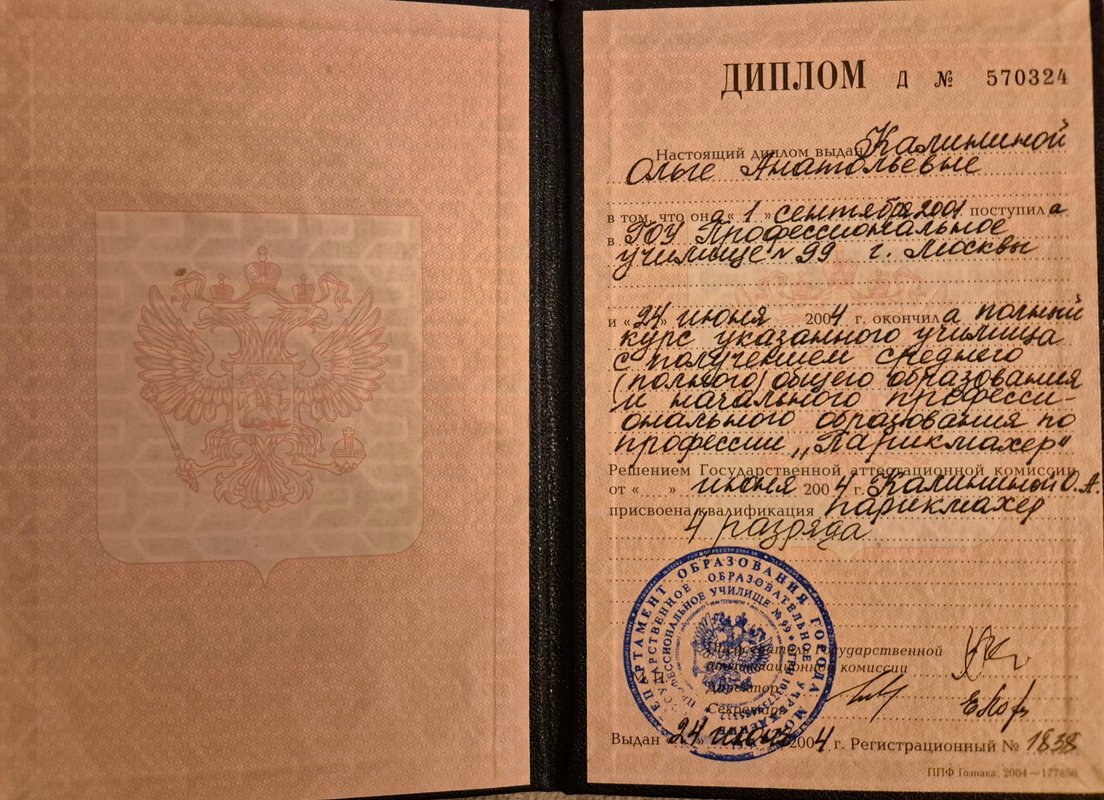 ДИПЛОМ Д № 570324
Настоящий диплом выдан Калининой
Ольге Анатольевне
в том, что она « 1 » сентября 2001 поступила
в ГОУ Профессиональное
училище № 99 г. Москвы
и « 24 » июня 2004 г. окончила полный
курс указанного училища
с получением среднего
(полного) общего образования
и начального професси-
онального образования по
профессии „Парикмахер“
Решением Государственной аттестационной комиссии
от « » июня 2004 г. Калининой О.А.
присвоена квалификация парикмахер
4 разряда
ДЕПАРТАМЕНТ ОБРАЗОВАНИЯ ГОРОДА
ГОСУДАРСТВЕННОЕ ОБРАЗОВАТЕЛЬНОЕ УЧРЕЖДЕНИЕ
ПРОФЕССИОНАЛЬНОЕ УЧИЛИЩЕ № 99
Председатель Государственной
аттестационной комиссии
Директор
Секретарь
Выдан 24 июня 2004 г. Регистрационный № 1838
ППФ Гознака. 2004—177850